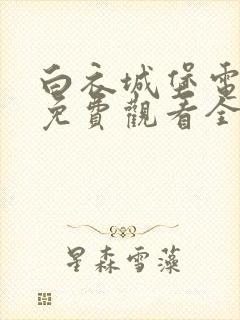 白衣城堡電
免費觀看全
星森雪藻